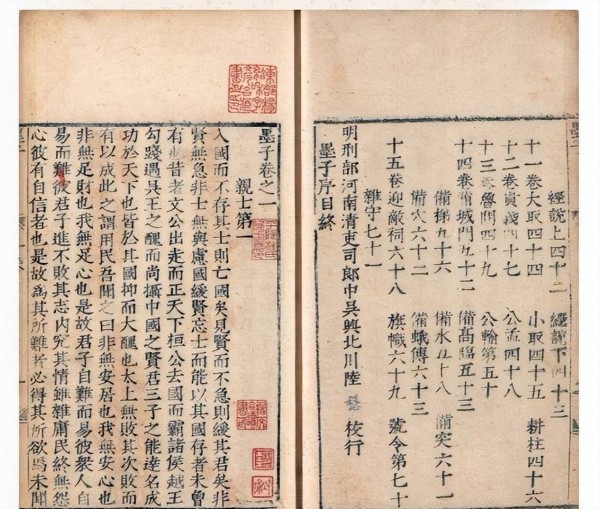 經說上四十二 經說下四十三
十一卷大取四十四 小取四十五 耕柱四十六
十二卷貴義四十七 公孟四十八
十三卷魯問四十九 公輸第五十
十四卷備城門五十二 備高臨五十三
備梯五十六 備水五十八 備突六十一
備穴六十二 備蛾傅六十三
十五卷迎敵祠六十八 旗幟六十九 號令第七十
雜守七十一
明刑部河南清吏司郎中吳興北川陸 校行
墨子序目終
墨子卷之一
親士第一
入國而不存其士則亡國矣見賢而不急則緩其君矣非
賢無急非士無與慮國緩賢忘士而能以其國存者未曾
有也昔者文公出走而正天下桓公去國而霸諸侯越王
勾踐遇吳王之醜而尚攝中國之賢君三子之能達名成
功於天下也皆於其國抑而大醜也太上無敗其次敗而
有以成此之謂用民吾聞之曰非無安居也我無安心也
非無足財也我無足心也是故君子自難而易彼衆人自
易而難彼君子進不敗其志內究其情雖雜庸民終無怨
心彼有自信者也是故爲其所難者必得其所欲焉未聞